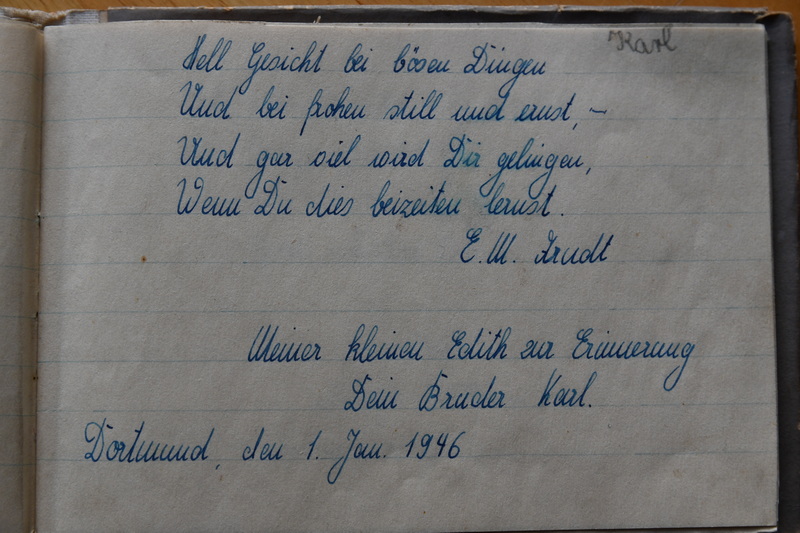 Karl
Hell Gesicht bei bösen Dingen
Und bei frohen still und ernst, –
Und gar viel wird Dir gelingen,
Wenn Du dies beizeiten lernst.
E. M. Arndt
Meiner kleinen Edith zur Erinnerung
Dein Bruder Karl.
Dortmund, den 1. Jan. 1946